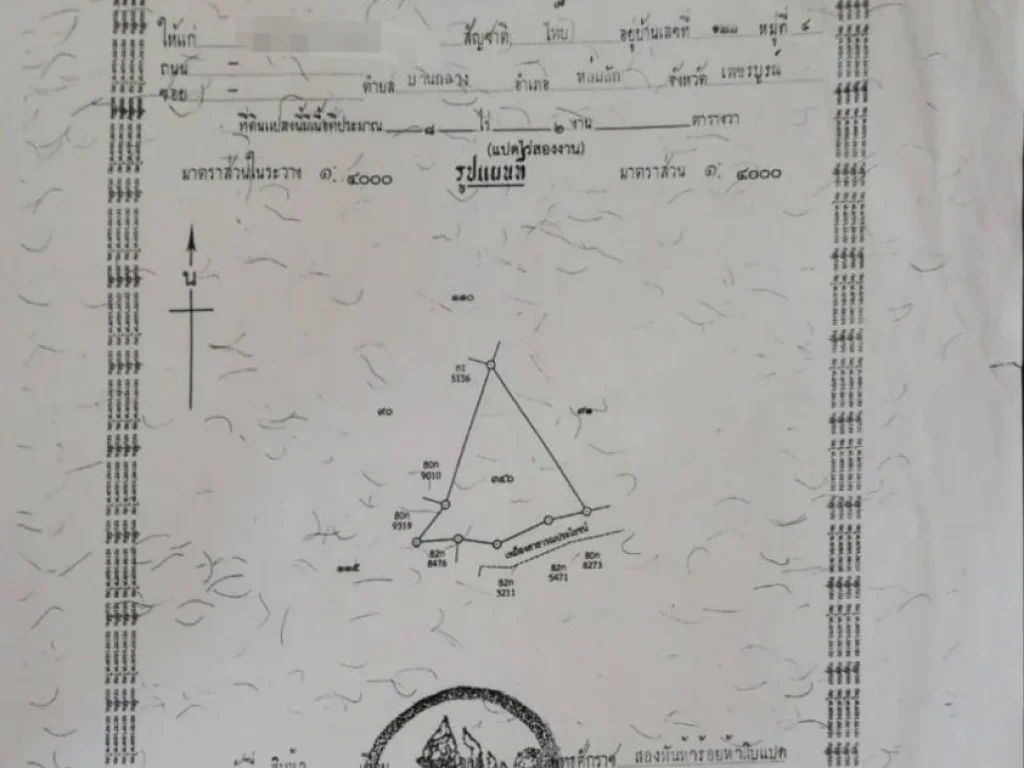 ให้แก่ สัญชาติ ไทย อยู่บ้านเลขที่ หมู่ที่ ๔
ถนน –
ซอย – ตำบล บ้านกลาง อำเภอ หล่มสัก จังหวัด เพชรบูรณ์
ที่ดินแปลงนี้มีเนื้อที่ประมาณ ๘ ไร่ ๒ งาน ตารางวา
(แปดไร่สองงาน)
มาตราส่วนในระวาง ๑: ๔๐๐๐ รูปแผนที่ มาตราส่วน ๑: ๔๐๐๐
น
๑๑๐
5156
๙๐ ๙๑
80ก
9010
๓๔๖
80ก
9319
82ก
8476
เหมืองสาธารณประโยชน์
๑๑๕
82ก
5211
82ก
5471
80ก
8273
สองพันห้าร้อยห้าสิบแปด